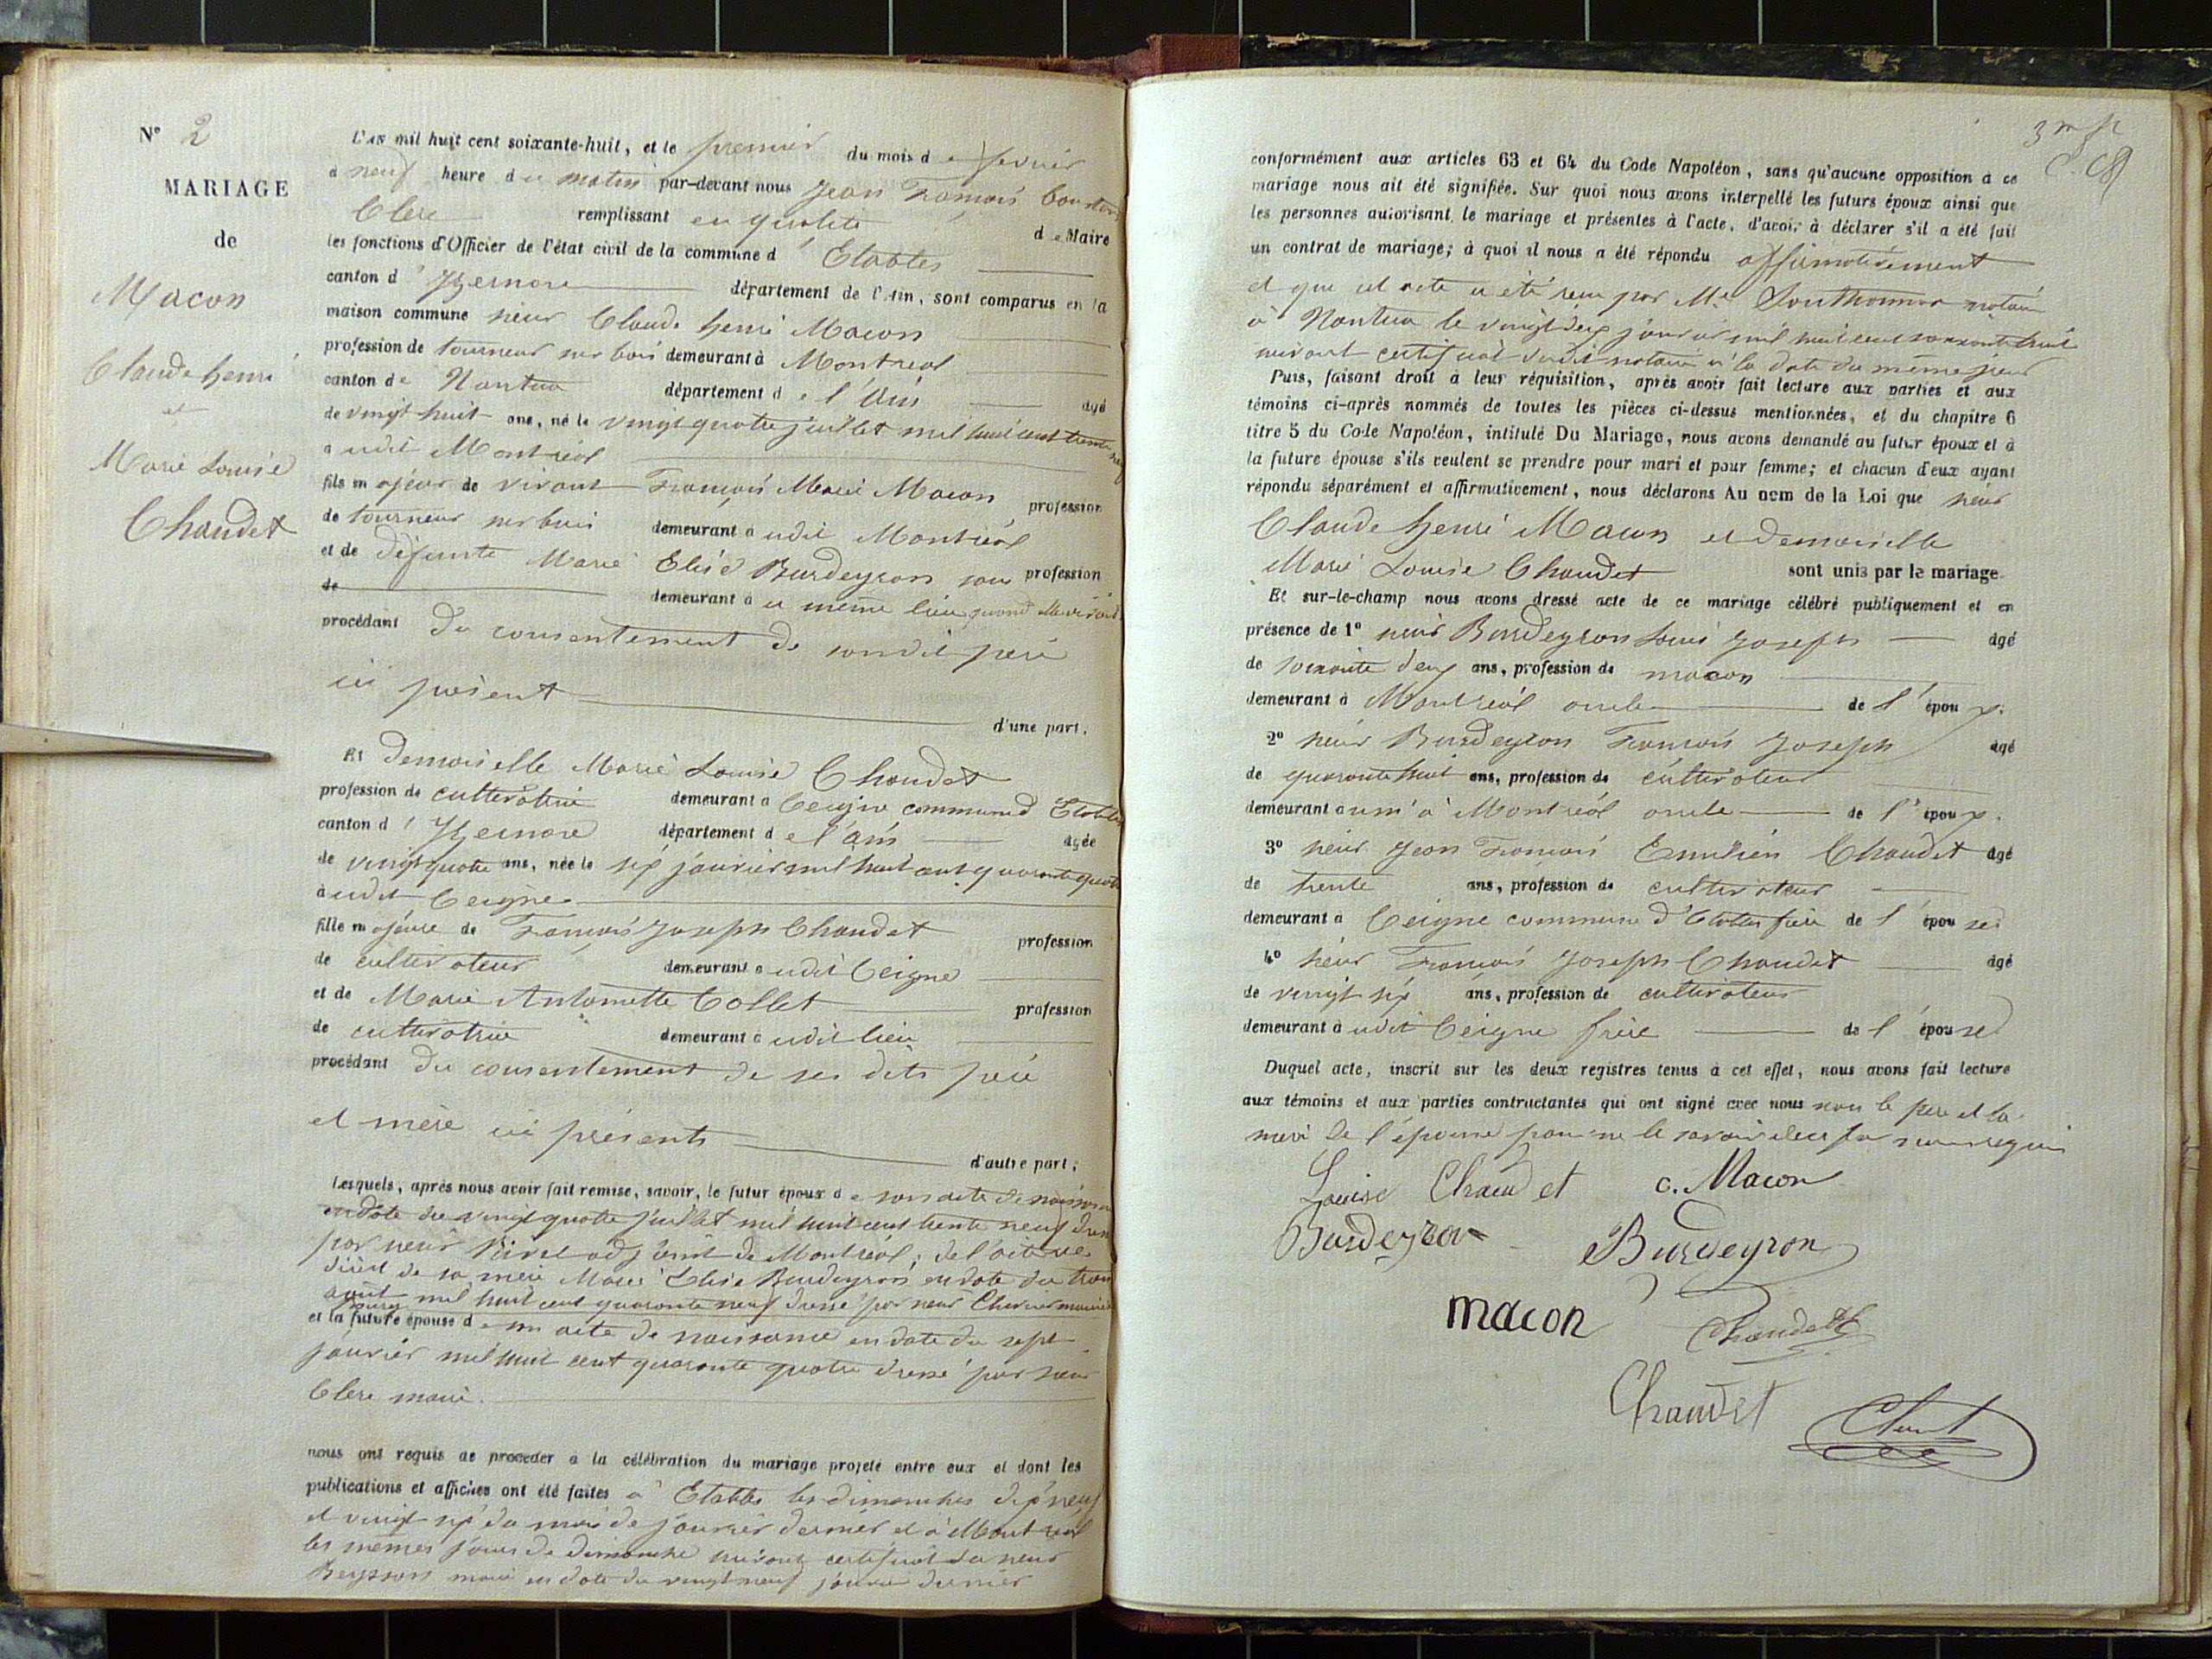 N° 2
MARIAGE
de
Macon
Claude henri
et
Marie Louise
Chaudet
L'an mil huit cent soixante-huit, et le premier du mois de fevrier
à neuf heure du matin par-devant nous Jean François
Clerc remplissant en qualité de Maire
les fonctions d'Officier de l'état civil de la commune d'Etables
canton d'Yzernore département de l'Ain, sont comparus en la
maison commune sieur Claude henri Macon
profession de tourneur sur bois demeurant à Montreal
canton de Nantua département de l'Ain âgé
de vingt huit ans, né le vingt quatre juillet mil huit cent trente neuf
audit Montréal
fils majeur de vivant François Marie Macon profession
de tourneur sur bois demeurant audit Montréal
et de défunte Marie Elise Burdeyron sans profession
de demeurant à ce même lieu quand elle vivait
procédant du consentement de son dit père
ici présent d'une part.
Et demoiselle Marie Louise Chaudet
profession de cultivatrice demeurant à Ceigne commune d'Etables
canton d'Yzernore département de l'Ain âgée
de vingt quatre ans, née le six janvier mil huit cent quarante quatre
audit Ceigne
fille majeure de François Joseph Chaudet profession
de cultivateur demeurant audit Ceigne
et de Marie Antoinette Collet profession
de cultivatrice demeurant audit lieu
procédant du consentement de ses dits père
et mère ici présents d'autre part;
Lesquels, après nous avoir fait remise, savoir, le futur époux de son acte de naissance
en date du vingt quatre juillet mil huit cent trente neuf
par sieur adjoint de Montréal; de l'acte de
décès de sa mère Marie Elise Burdeyron en date du trois
août mil huit cent quarante neuf dressé par sieur maire
et la future épouse de son acte de naissance en date du sept
janvier mil huit cent quarante quatre dressé par sieur
Clerc maire.
nous ont requis de procéder à la célébration du mariage projeté entre eux et dont les
publications et affiches ont été faites à Etables les dimanches dix neuf
et vingt six du mois de janvier dernier et à Montreal
les mêmes jours de dimanche suivant certificat du sieur
maire en date du vingt neuf janvier dernier
conformément aux articles 63 et 64 du Code Napoléon, sans qu'aucune opposition à ce
mariage nous ait été signifiée. Sur quoi nous avons interpellé les futurs époux ainsi que
les personnes autorisant le mariage et présentes à l'acte, d'avoir à déclarer s'il a été fait
un contrat de mariage; à quoi il nous a été répondu affirmativement
et que cet acte a été reçu par Me notaire
à Nantua le vingt deux janvier mil huit cent soixante huit
suivant certificat dudit notaire à la date du même jour
Puis, faisant droit à leur réquisition, après avoir fait lecture aux parties et aux
témoins ci-après nommés de toutes les pièces ci-dessus mentionnées, et du chapitre 6
titre 5 du Code Napoléon, intitulé Du Mariage, nous avons demandé au futur époux et à
la future épouse s'ils veulent se prendre pour mari et pour femme; et chacun d'eux ayant
répondu séparément et affirmativement, nous déclarons Au nom de la Loi que sieur
Claude henri Macon et demoiselle
Marie Louise Chaudet sont unis par le mariage.
Et sur-le-champ nous avons dressé acte de ce mariage célébré publiquement et en
présence de 1° sieur Burdeyron Louis Joseph âgé
de soixante deux ans, profession de maçon
demeurant à Montréal oncle de l'époux.
2° sieur Burdeyron François Joseph âgé
de quarante huit ans, profession de cultivateur
demeurant aussi à Montréal oncle de l'époux.
3° sieur Jean François Emilien Chaudet âgé
de trente ans, profession de cultivateur
demeurant à Ceigne commune d'Etables frère de l'épouse
4° sieur François Joseph Chaudet âgé
de vingt six ans, profession de cultivateur
demeurant audit Ceigne frère de l'épouse
Duquel acte, inscrit sur les deux registres tenus à cet effet, nous avons fait lecture
aux témoins et aux parties contractantes qui ont signé avec nous non le père et la
mère de l'épouse pour ne le savoir
Louise Chaudet c. Macon
Burdeyron Burdeyron
macon Chaudet
Chaudet